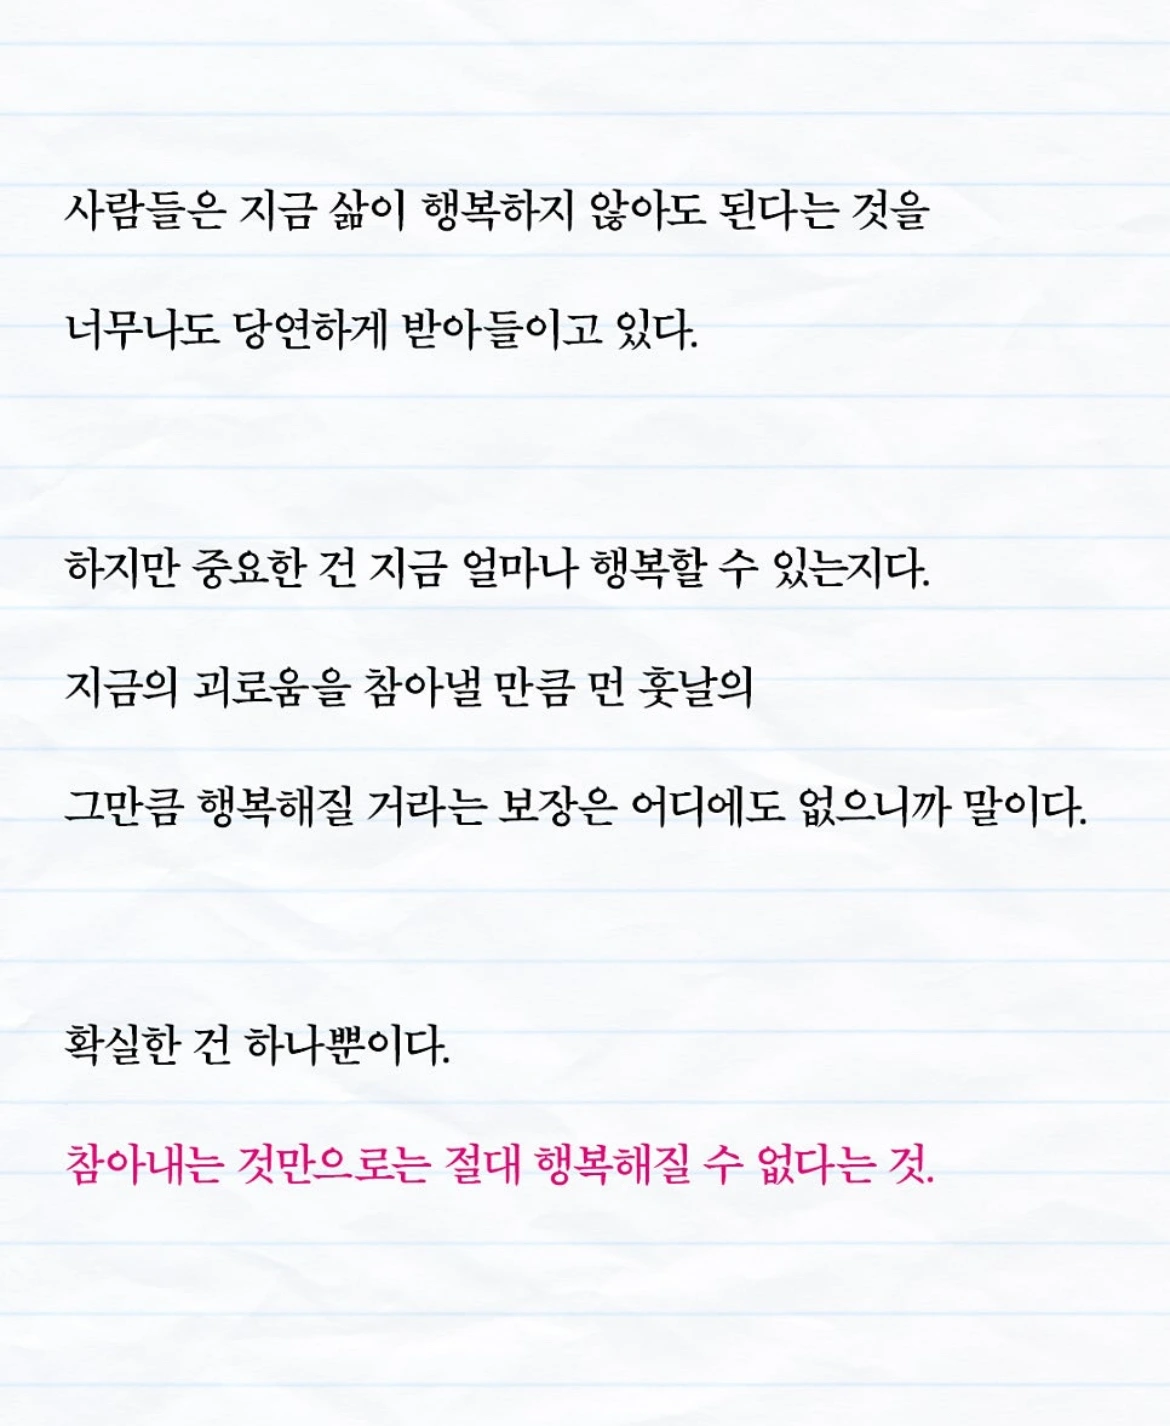 사람들은 지금 삶이 행복하지 않아도 된다는 것을
너무나도 당연하게 받아들이고 있다.
하지만 중요한 건 지금 얼마나 행복할 수 있는지다.
지금의 괴로움을 참아낼 만큼 먼 훗날의
그만큼 행복해질 거라는 보장은 어디에도 없으니까 말이다.
확실한 건 하나뿐이다.
참아내는 것만으로는 절대 행복해질 수 없다는 것.